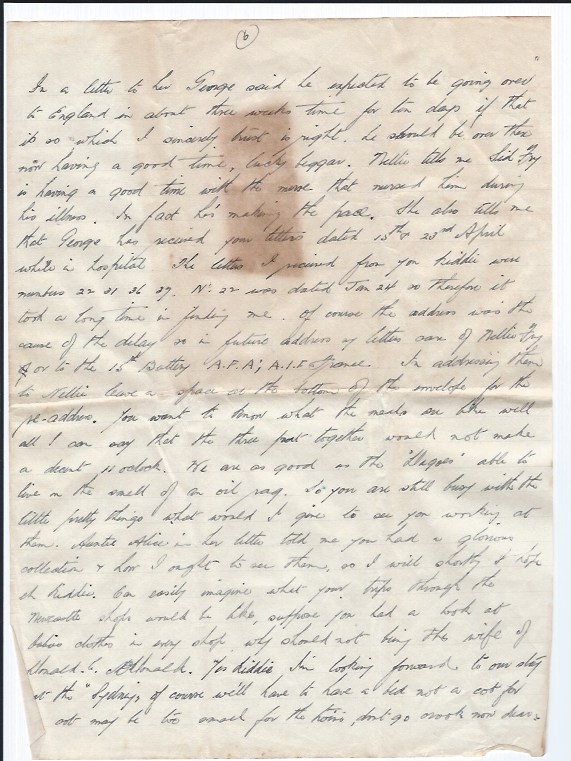 6
In a letter to her George said he expected to be going over
to England in about three weeks time for ten days if that
is so which I sincerely trust is right. he should be over there
now having a good time, lucky beggar. Nellie tells me Sid Fry
is having a good time with the nurse that nursed him during
his illness. In fact he's making the pace. She also tells me
that George has received your letters dated 15th & 23rd April
while in hospital The letters I received from you Kiddie were
numbers 22 31 36 39. No. 22 was dated Jan 24 so therefore it
took a long time in finding me. Of course the address was the
cause of the delay so in future address my letters care of Nellie Fry
or to the 15th Battery A.F.A; A.I.F France. In addressing them
to Nellie leave a space at the bottom of the envelope for the
re-address. You want to know what the meals are like well
all I can say that the three put together would not make
a decent 11 oclock. We are as good as the "Dagoes" able to
live on the smell of an oil rag. So you are still busy with the
little pretty things what would I give to see you working at
them. Auntie Alice in her letter told me you had a glorious
collection & how I ought to see them, so I will shortly I hope
eh Kiddie. Can easily imagine what your trips through the
Newcastle shops would be like, suppose you had a look at
babies clothes in every shop, why should not being the wife of
Donald. C. McDonald. Yes Kiddie I'm looking forward to our stay
at the "Sydney, of course we'll have to have a bed not a cot for
cot may be too small for the twins, dont go crook now dear.